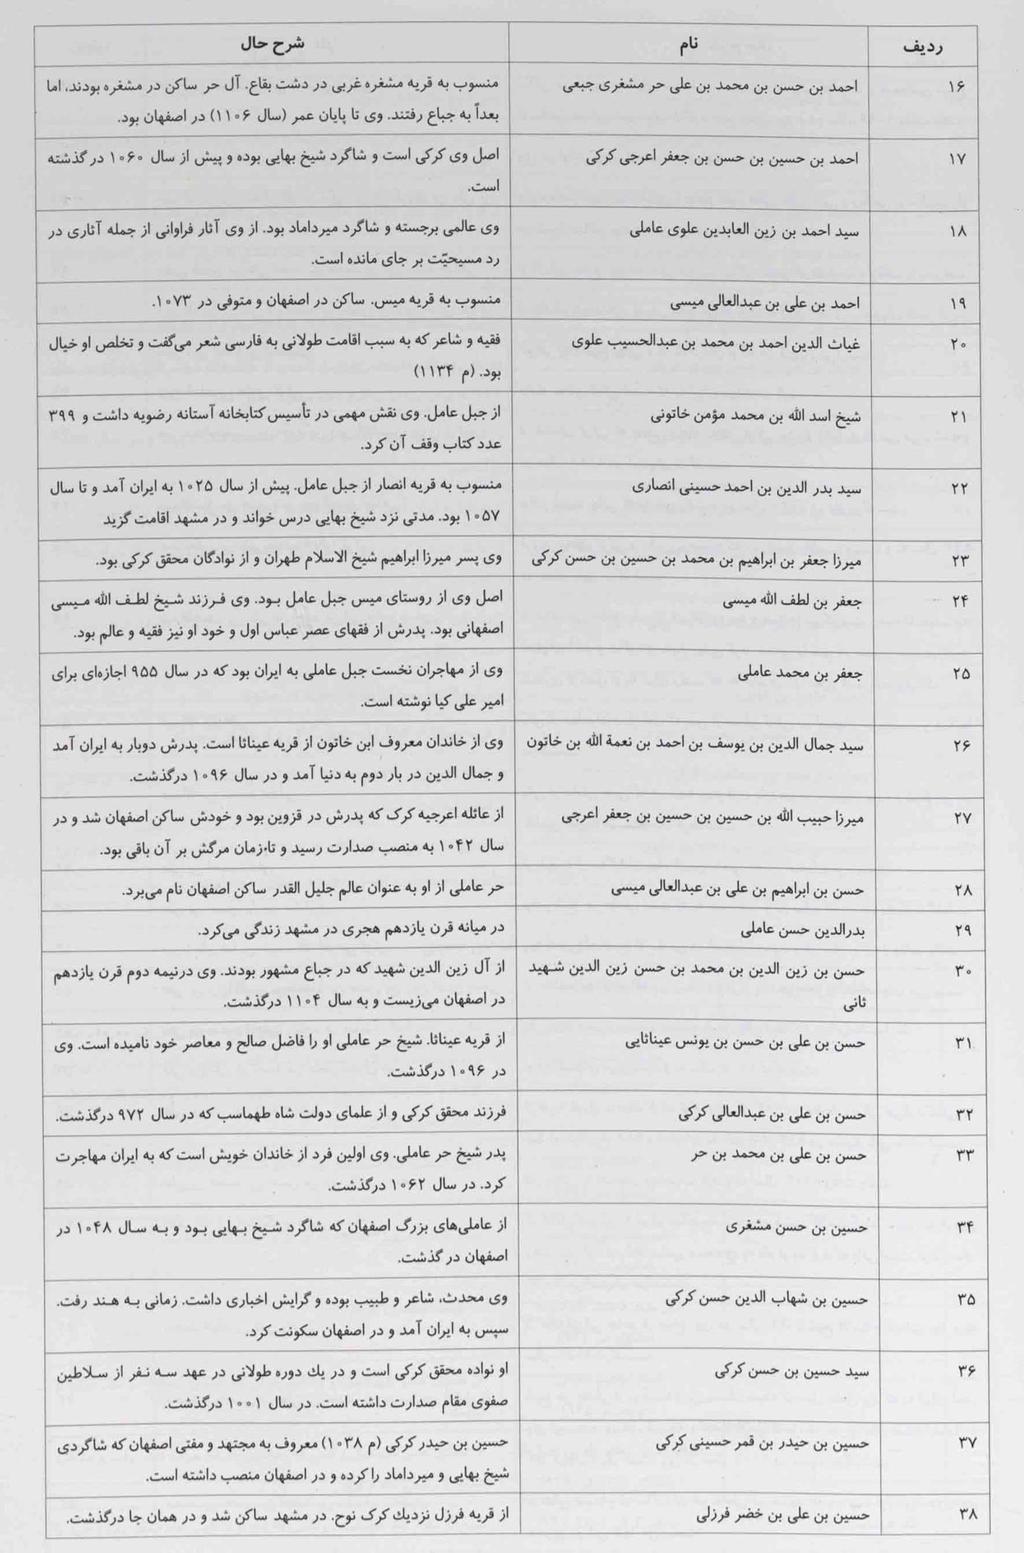 ردیف	نام	شرح حال
۱۶	احمد بن حسن بن محمد بن علی حر مشغری جبعی	منسوب به قریه مشغره غربی در دشت بقاع. آل حر ساکن در مشغره بودند، اما
بعداً به جباع رفتند. وی تا پایان عمر (سال ۱۱۰۶) در اصفهان بود.
۱۷	احمد بن حسین بن حسن بن جعفر اعرجی کرکی	اصل وی کرکی است و شاگرد شیخ بهایی بوده و پیش از سال ۱۰۶۰ در گذشته
است.
۱۸	سید احمد بن زین العابدین علوی عاملی	وی عالمی برجسته و شاگرد میرداماد بود. از وی آثار فراوانی از جمله آثاری در
رد مسیحیّت بر جای مانده است.
۱۹	احمد بن علی بن عبدالعالی میسی	منسوب به قریه میس. ساکن در اصفهان و متوفی در ۱۰۷۳.
۲۰	غیاث الدین احمد بن محمد بن عبدالحسیب علوی	فقیه و شاعر که به سبب اقامت طولانی به فارسی شعر می‌گفت و تخلص او خیال
بود. (م ۱۱۳۴)
۲۱	شیخ اسد الله بن محمد مؤمن خاتونی	از جبل عامل. وی نقش مهمی در تأسیس کتابخانه آستانه رضویه داشت و ۳۹۹
عدد کتاب وقف آن کرد.
۲۲	سید بدر الدین بن احمد حسینی انصاری	منسوب به قریه انصار از جبل عامل. پیش از سال ۱۰۲۵ به ایران آمد و تا سال
۱۰۵۷ بود. مدتی نزد شیخ بهایی درس خواند و در مشهد اقامت گزید
۲۳	میرزا جعفر بن ابراهیم بن محمد بن حسین بن حسن کرکی	وی پسر میرزا ابراهیم شیخ الاسلام طهران و از نوادگان محقق کرکی بود.
۲۴	جعفر بن لطف الله میسی	اصل وی از روستای میس جبل عامل بود. وی فرزند شیخ لطف الله میسی
اصفهانی بود. پدرش از فقهای عصر عباس اول و خود او نیز فقیه و عالم بود.
۲۵	جعفر بن محمد عاملی	وی از مهاجران نخست جبل عاملی به ایران بود که در سال ۹۵۵ اجازه‌ای برای
امیر علی کیا نوشته است.
۲۶	سید جمال الدین بن یوسف بن احمد بن نعمة الله بن خاتون	وی از خاندان معروف ابن خاتون از قریه عیناثا است. پدرش دوبار به ایران آمد
و جمال الدین در بار دوم به دنیا آمد و در سال ۱۰۹۶ درگذشت.
۲۷	میرزا حبیب الله بن حسین بن حسین بن جعفر اعرجی	از عائله اعرجیه کرک که پدرش در قزوین بود و خودش ساکن اصفهان شد و در
سال ۱۰۴۲ به منصب صدارت رسید و تا زمان مرگش بر آن باقی بود.
۲۸	حسن بن ابراهیم بن علی بن عبدالعالی میسی	حر عاملی از او به عنوان عالم جلیل القدر ساکن اصفهان نام می‌برد.
۲۹	بدرالدین حسن عاملی	در میانه قرن یازدهم هجری در مشهد زندگی می‌کرد.
۳۰	حسن بن زین الدین بن محمد بن حسن زین الدین شهید	از آل زین الدین شهید که در جباع مشهور بودند. وی درنیمه دوم قرن یازدهم
ثانی	در اصفهان می‌زیست و به سال ۱۱۰۴ درگذشت.
۳۱	حسن بن علی بن حسن بن یونس عیناثایی	از قریه عیناثا. شیخ حر عاملی او را فاضل صالح و معاصر خود نامیده است. وی
در ۱۰۹۶ درگذشت.
۳۲	حسن بن علی بن عبدالعالی کرکی	فرزند محقق کرکی و از علمای دولت شاه طهماسب که در سال ۹۷۲ درگذشت.
۳۳	حسن بن علی بن محمد بن حر	پدر شیخ حر عاملی. وی اولین فرد از خاندان خویش است که به ایران مهاجرت
کرد. در سال ۱۰۶۲ درگذشت.
۳۴	حسین بن حسن مشغری	از عاملی‌های بزرگ اصفهان که شاگرد شیخ بهایی بود و به سال ۱۰۴۸ در
اصفهان در گذشت.
۳۵	حسین بن شهاب الدین حسن کرکی	وی محدث، شاعر و طبیب بوده و گرایش اخباری داشت. زمانی به هند رفت.
سپس به ایران آمد و در اصفهان سکونت کرد.
۳۶	سید حسین بن حسن کرکی	او نواده محقق کرکی است و در یك دوره طولانی در عهد سه نفر از سلاطین
صفوی مقام صدارت داشته است. در سال ۱۰۰۱ درگذشت.
۳۷	حسین بن حیدر بن قمر حسینی کرکی	حسین بن حیدر کرکی (م ۱۰۳۸) معروف به مجتهد و مفتی اصفهان که شاگردی
شیخ بهایی و میرداماد را کرده و در اصفهان منصب داشته است.
۳۸	حسین بن علی بن خضر فرزلی	از قریه فرزل نزدیك کرک نوح. در مشهد ساکن شد و در همان جا درگذشت.